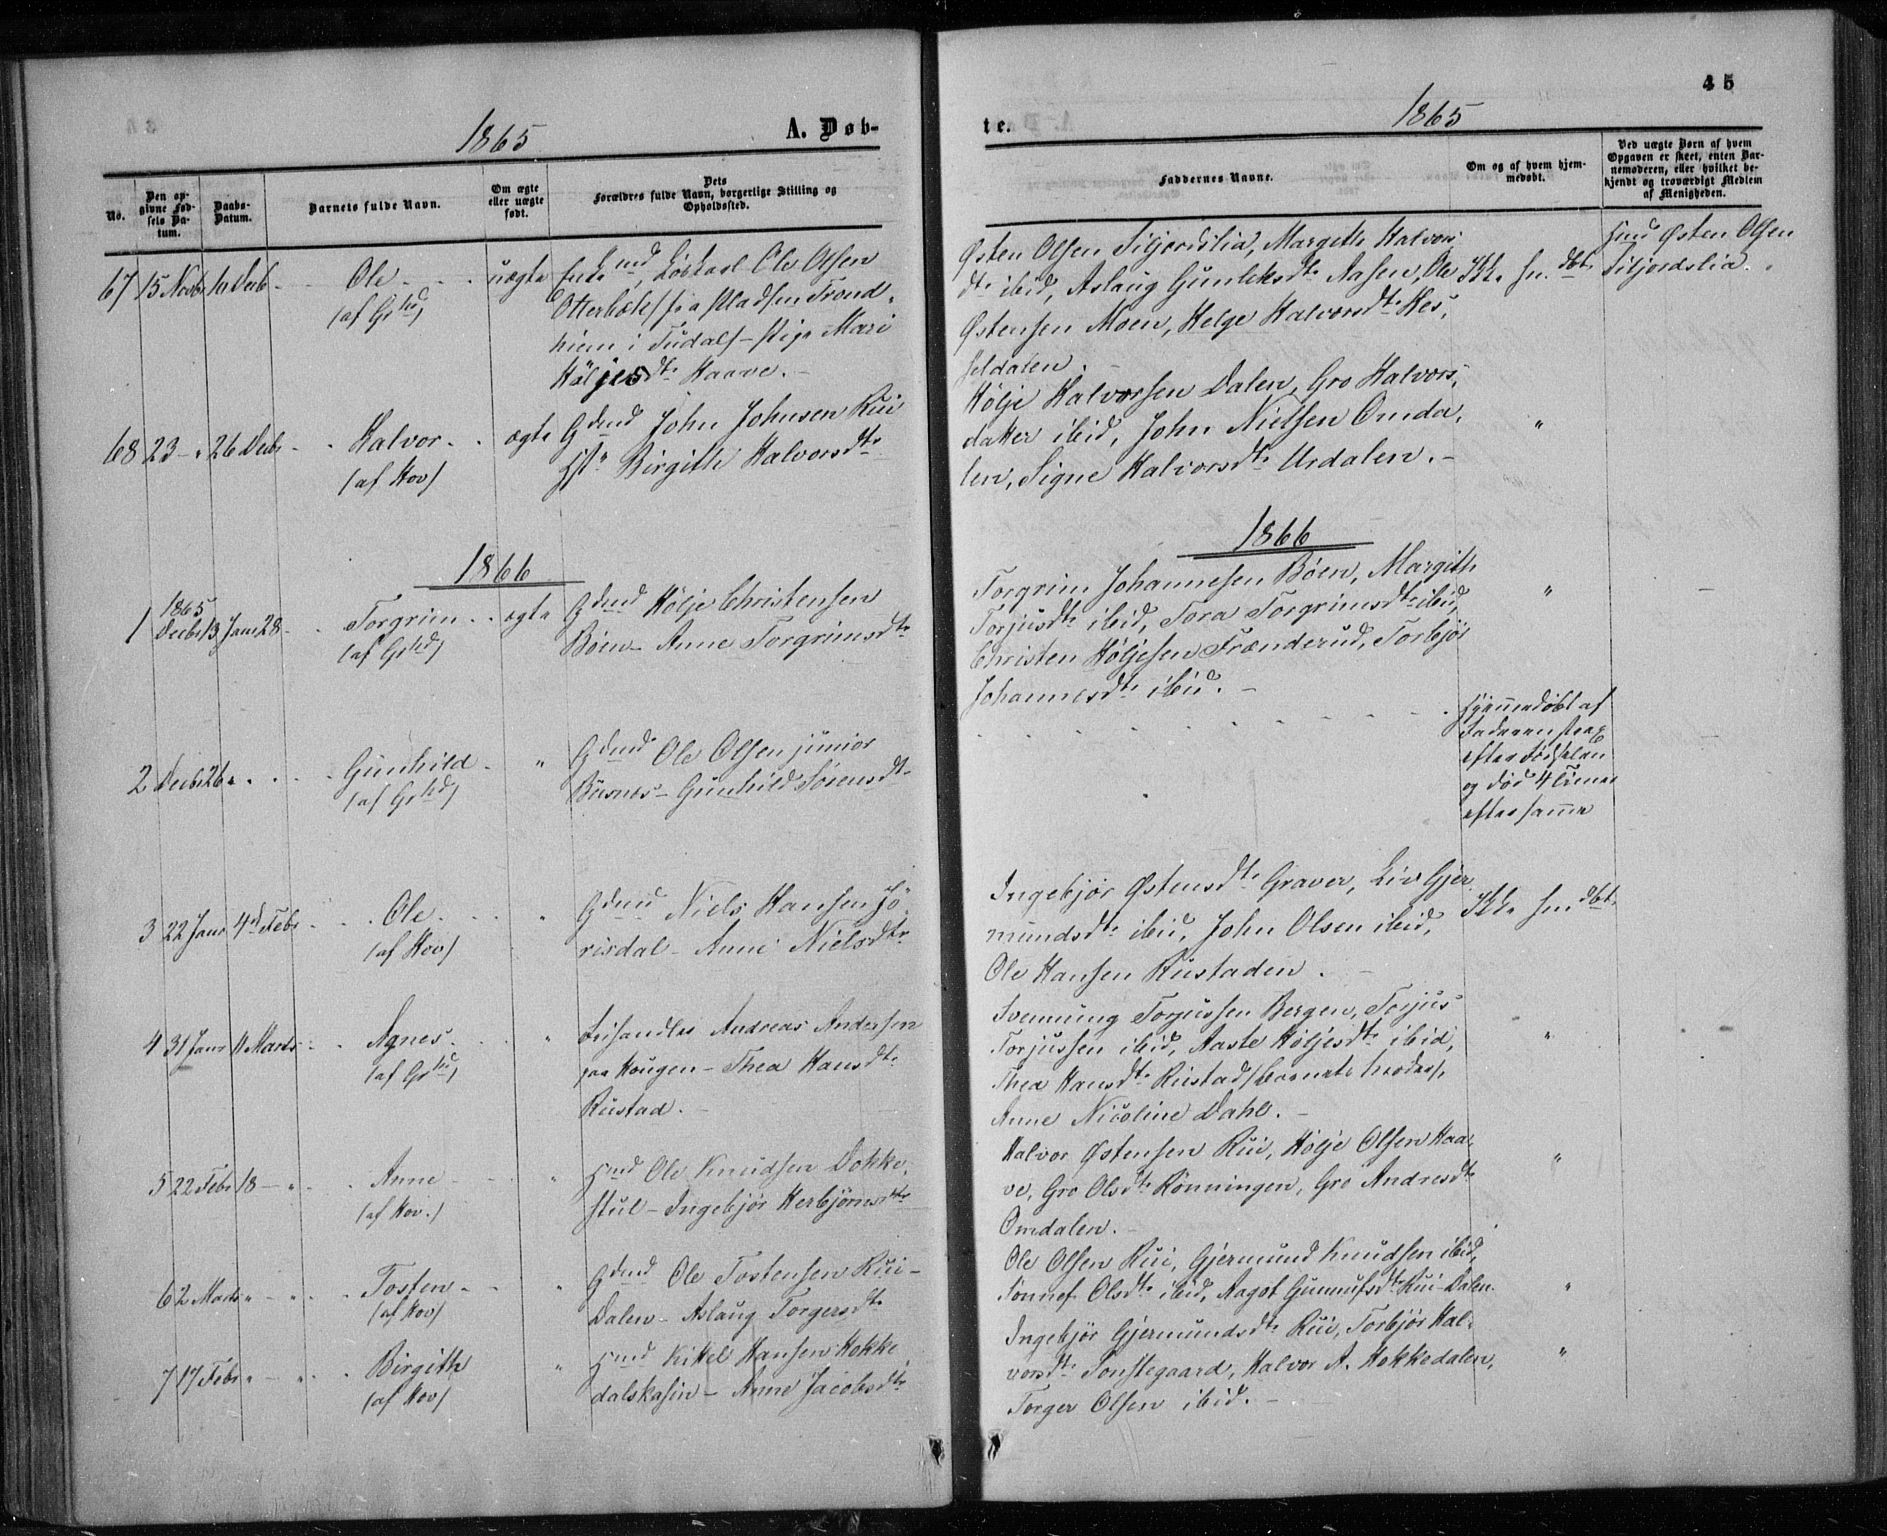 1865
A. Døb-
No.
Den op-
givne Fød-
sels Da-
tum.
Daabs-
Datum.
Barnets fulde Navn.
Om ægte
eller uægte
født.
Dets
Forældres fulde Navn, borgerlige Stilling og
Opholdssted.
67 15 Novbr 10 Decb - Ole - uægte Enkemd, Løskarl Ole Olsen
(af Grhd) Otterholt (fra Pladsen Trond-
hiem i Tudal) - Pige Mari
Høljesdtr Haave. -
68 23 - " 26 Decbr - Halvor - ægte Gdmd John Johnsen Rui
(af Hov) Hst Birgith Halvorsdtr
1866
1 1865 Decbr 13 Janr 28 - Torgrim - ægte Gdmd Hølje Christensen
(af Grhd) Bøen - Anne Torgrimsdtr
2 Decbr 26 " - Gunhild - " Gdmd Ole Olsen junior
(af Grhd) Busnes - Gunhild Sørensdtr
3 22 Janr 4de Febr - Ole - " Gdmd Niels Hansen Jø-
(af Hov) risdal - Anne Nielsdtr
4 31 Janr 11 Marts - Agnes - " Andreas Andersen
(af Grhd) paa Haugen - Thea Hansdtr
Rustad. -
5 22 Febr 18 - " Anne - " Hmd Ole Knudsen Dokke-
(af Hov.) stul - Ingebjør Herbjørnsdtr
6 2 Marts " - " Tosten - " Gdmd Ole Tostensen Rui-
(af Hov) Dalen - Aslaug Torgersdtr
7 17 Febr " - " Birgith " Hmd Kittel Hansen Hokke-
(af Hov) dalskasin - Anne Jacobsdtr
45
te.
1865
Faddernes Navne.
Om og af hvem hjem-
medøbt.
Ved uægte Børn af hvem
Opgaven er skeet, enten Bar-
nemoderen, eller hvilket be-
kjendt og troværdigt Medlem
af Menigheden.
Østen Olsen Siljordslia, Margith Halvors-
dtr ibid, Aslaug Gunleksdtr Aasen, Ole Ikke hm. dbt. Østen Olsen
Østensen Moen, Helge Halvorsdtr Hes- Siljordslia.
seldalen.
Hølje Halvorsen Dalen, Gro Halvors-
datter ibid, John Nielsen Omda- "
len, Signe Halvorsdtr Urdalen. -
1866
Torgrim Johannesen Bøen, Margith
Torjusdtr ibid, Tora Torgrimsdtr ibid, "
Christen Høljesen Frænderud, Torbjør
Johannesdtr ibid. -
hjemmedøbt af
Faderen strax
efter Fødselen
og død 4 Timer
efter samme
Ingebjør Østensdtr Graver, Liv Gjer-
mundsdtr ibid, John Olsen ibid, Ikke hm. dbt.
Ole Hansen Rustaden. -
Svennung Torjussen Bergen, Torjus
Torjussen ibid, Aaste Høljesdtr ibid, "
Thea Hansdtr Rustad (barnets moder),
Anne Nicoline Dahl. -
Halvor Østensen Rui, Hølje Olsen Haa-
ve, Gro Olsdtr Rønningen, Gro Andresdtr "
Omdalen. -
Ole Olsen Rui, Gjermund Knudsen ibid,
Tønnef Olsdtr ibid, Aagot Gunnufsdtr Rui-Dalen. "
Ingebjør Gjermundsdtr Rui, Torbjør Hal-
vorsdtr Tonstegaard, Halvor A. Hokkedalen, "
Torger Olsen ibid. -